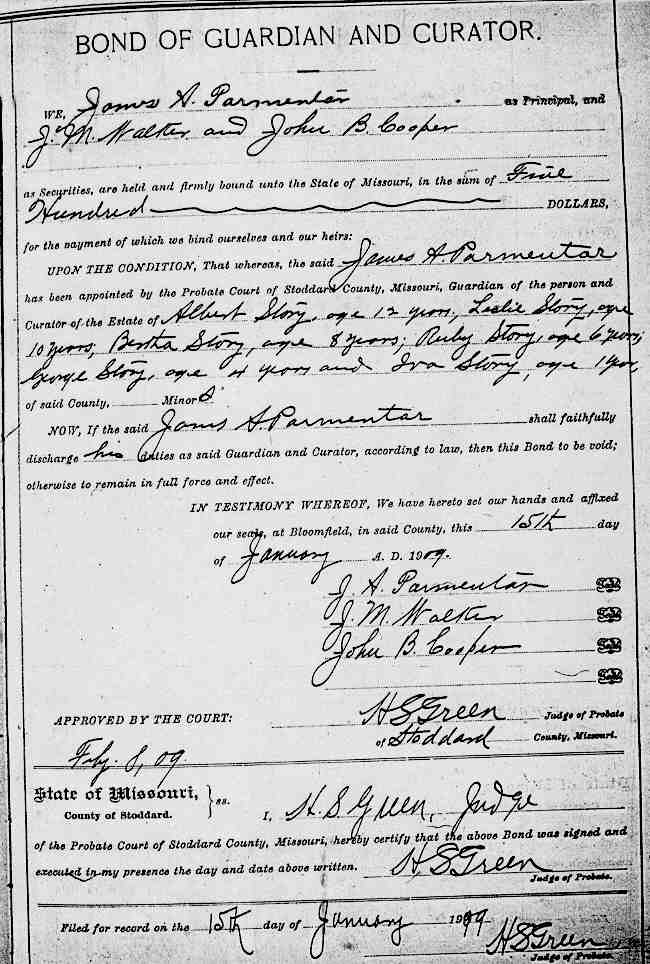 BOND OF GUARDIAN AND CURATOR.
WE, James A. Parmentar as Principal, and
J. M. Walker and John B. Cooper
as Securities, are held and firmly bound unto the State of Missouri, in the sum of Five
Hundred DOLLARS,
for the payment of which we bind ourselves and our heirs:
UPON THE CONDITION, That whereas, the said James A. Parmentar
has been appointed by the Probate Court of Stoddard County, Missouri, Guardian of the person and
Curator of the Estate of Albert Story, age 12 years, Leslie Story, age
10 years, Bertha Story, age 8 years; Ruby Story, age 6 years,
George Story, age 4 years and Iva Story, age 1 year,
of said County, Minor s
NOW, If the said James A. Parmentar shall faithfully
discharge his duties as said Guardian and Curator, according to law, then this Bond to be void;
otherwise to remain in full force and effect.
IN TESTIMONY WHEREOF, We have hereto set our hands and affixed
our seals, at Bloomfield, in said County, this 15th day
of January A. D. 1909.
J. A. Parmentar
J. M. Walker
John B. Cooper
APPROVED BY THE COURT: H S Green Judge of Probate
of Stoddard County, Missouri.
Feby. 8, 09
State of Missouri, } ss.
County of Stoddard. I, H. S Green, Judge
of the Probate Court of Stoddard County, Missouri, hereby certify that the above Bond was signed and
executed in my presence the day and date above written. H S Green
Judge of Probate.
Filed for record on the 15th day of January 1909
H S Green
Judge of Probate.